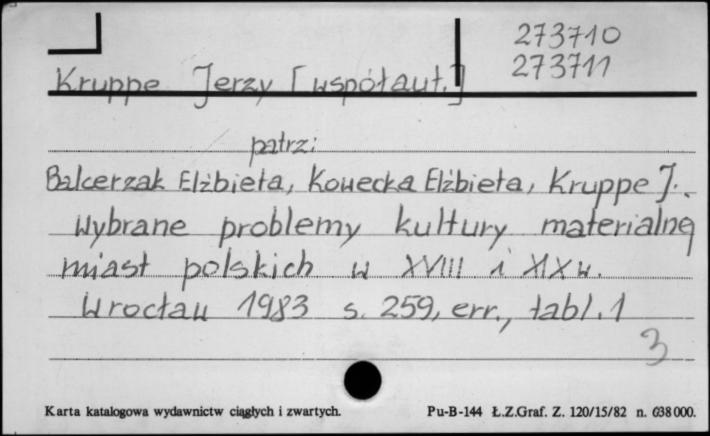 273710
273711
Kruppe Jerzy [współaut.]
patrz:
Balcerzak Elżbieta, Kowecka Elżbieta, Kruppe J..
Wybrane problemy kultury materialnej
miast polskich w XVIII i XIX w.
Wrocław 1983 s. 259, err., tabl. 1
3
Karta katalogowa wydawnictw ciągłych i zwartych. Pu-B-144 Ł.Z.Graf. Z. 120/15/82 n. 638000.